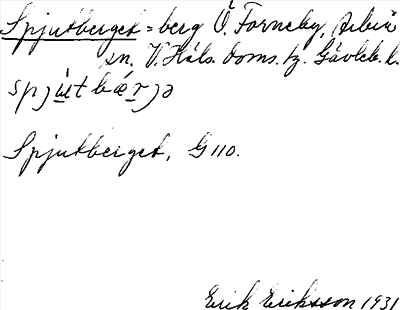 Spjutberget = berg Ö. Forneby, Arbrå
sn. V. Häls. doms. tz. Gävleb. l.
spjút bǽrjə
Spjutberget, G 110.
Erik Eriksson 1931